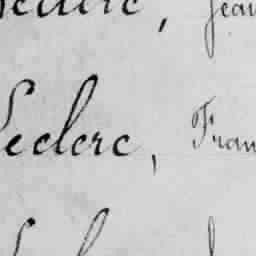 Leclerc, Jean
Leclerc, Fran